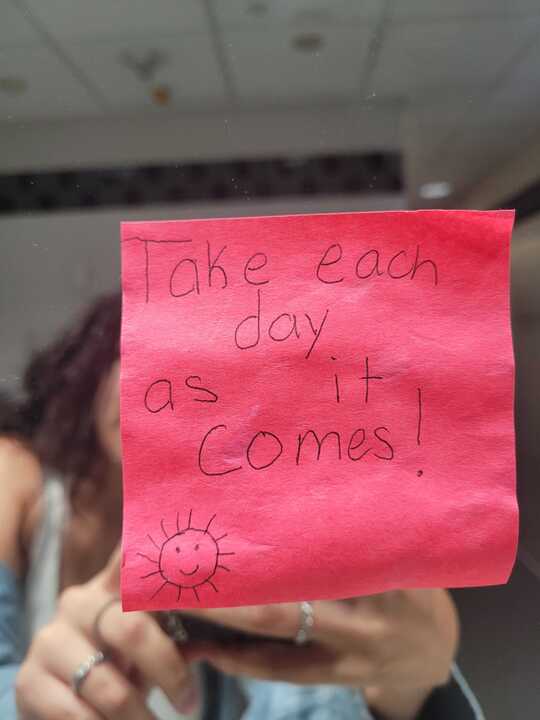 Take each
day
as it
comes!